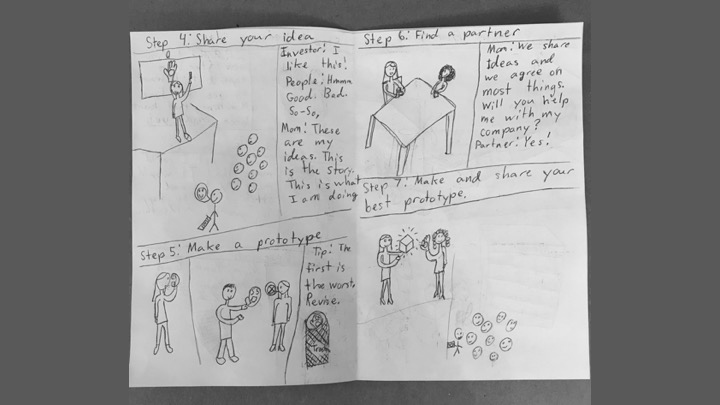 Step 4: Share your idea
Investor: I
like this!
People: Hmmm
Good. Bad.
So-So,
Mom: These
are my
ideas. This
is the story.
This is what
I am doing
Step 5: Make a prototype
Tip: The
first is
the worst.
Revise.
Trash
Step 6: Find a partner
Mom: We share
Ideas and
we agree on
most things.
Will you help
me with my
company?
Partner: Yes!
Step 7: Make and share your
best prototype.